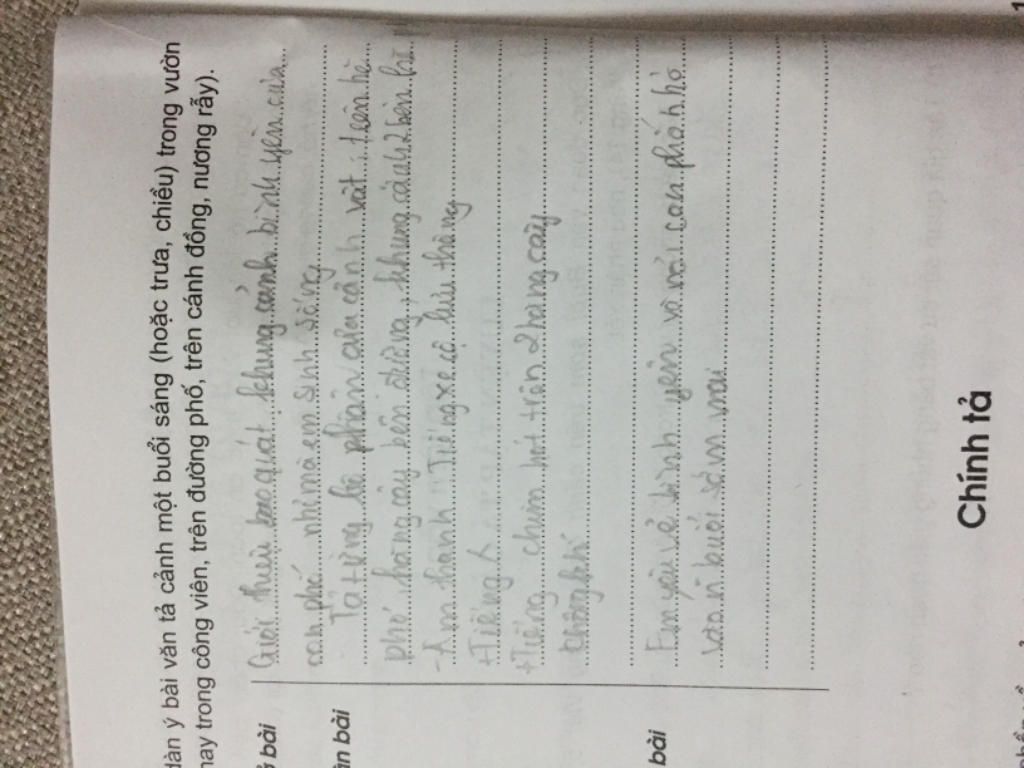 dàn ý bài văn tả cảnh một buổi sáng (hoặc trưa, chiều) trong vườn
hay trong công viên, trên đường phố, trên cánh đồng, nương rẫy).
ở bài
Giới thiệu bao quát khung cảnh bình yên của
con phố nhỉ mà em sinh sống
ân bài
Tả từng bộ phận của cảnh vật: trên hè
phố, hàng cây bên đường, khung cảnh 2 bên hè
- Âm thanh: Tiếng xe cộ lưu thông
+ Tiếng
+ Tiếng chim hót trên 2 hàng cây
không khí
bài
Em yêu vẻ bình yên vô với con phố nhỏ
vào buổi sớm mai
Chính tả